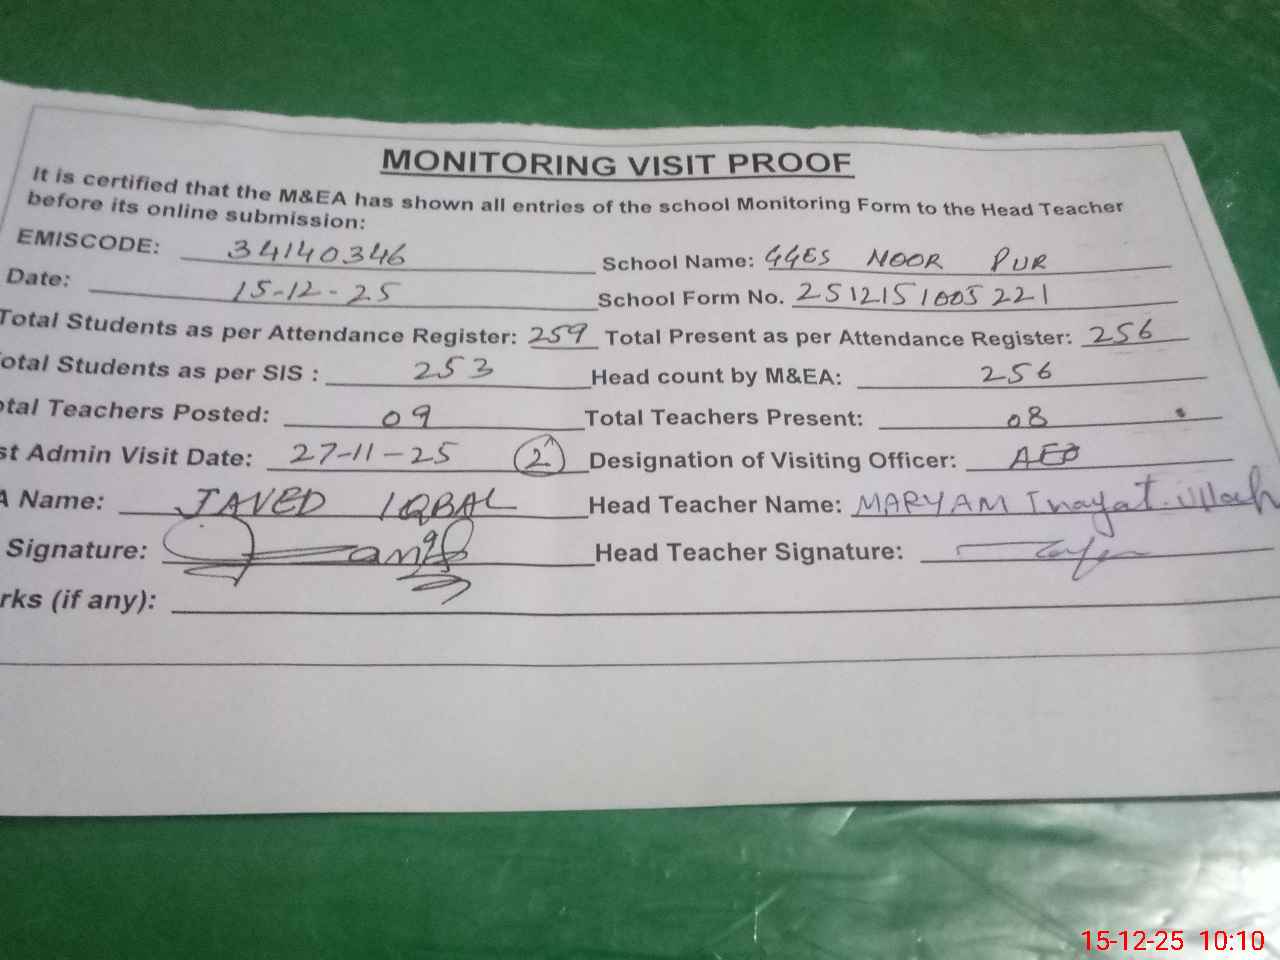 MONITORING VISIT PROOF
It is certified that the M&EA has shown all entries of the school Monitoring Form to the Head Teacher
before its online submission:
EMISCODE: 34140346 School Name: GGES NOOR PUR
Date: 15-12-25 School Form No. 2512151005221
Total Students as per Attendance Register: 259 Total Present as per Attendance Register: 256
otal Students as per SIS : 253 Head count by M&EA: 256
otal Teachers Posted: 09 Total Teachers Present: 08
st Admin Visit Date: 27-11-25 2 Designation of Visiting Officer: AEO
A Name: JAVED IQBAL Head Teacher Name: MARYAM Inayat ullah
Signature: Head Teacher Signature:
rks (if any):
15-12-25 10:10